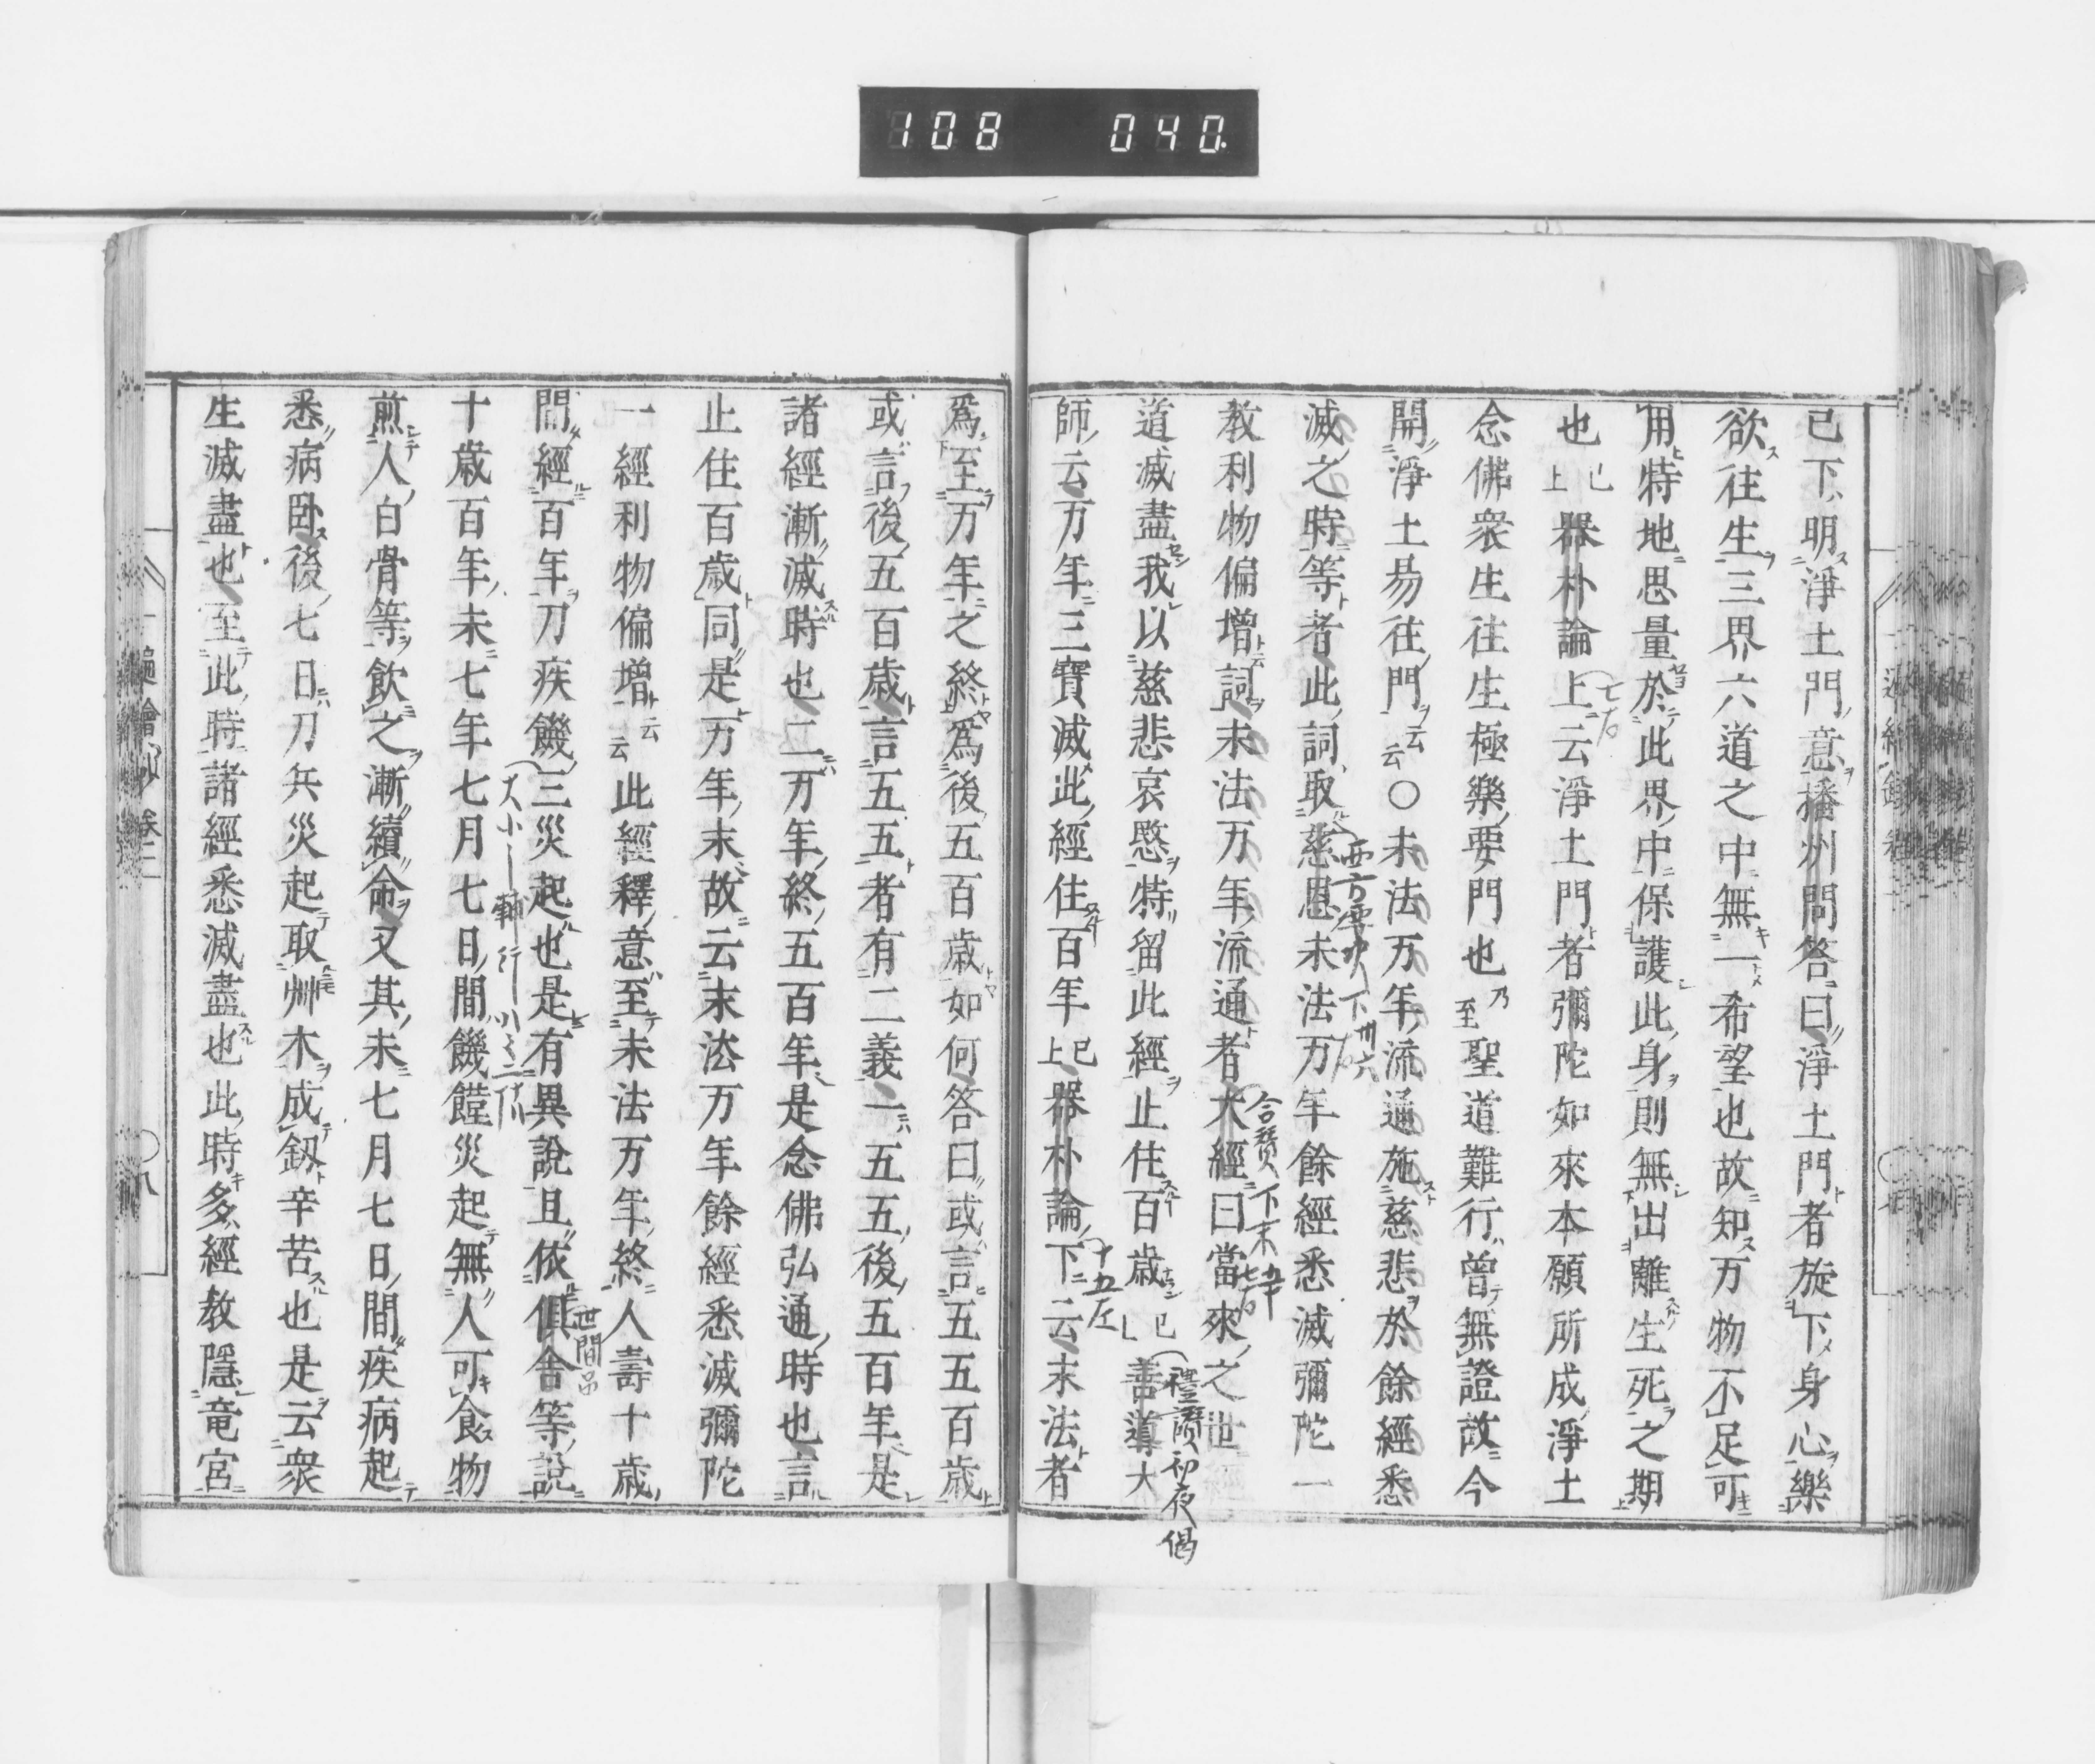 108 040.
已下明淨土門意播州問答曰淨土門者旋下身心樂
欲往生三界六道之中無一希望也故知万物不足可
用特地思量於此界中保護此身則無出離生死之期
也已上器朴論上云淨土門者彌陀如來本願所成淨土
念佛衆生往生極樂要門也乃至聖道難行曾無證故今
開淨土易往門云云○末法万年流通施慈悲於餘經悉
滅之時等者此詞取慈恩末法万年餘經悉滅彌陀一
教利物偏增詞末法万年流通者大經曰當來之世
道滅盡我以慈悲哀愍特留此經止住百歳已上善導大
師云万年三寶滅此經住百年已上器朴論下云末法者
禮讚初夜偈
爲至万年之終爲後五百歳如何答曰或言五五百歳
或言後五百歳言五五者有二義一五五後五百年是
諸經漸滅時也二万年終五百年是念佛弘通時也言
止住百歳同是万年末故云末法万年餘經悉滅彌陀
一經利物偏增云云此經釋意至末法万年終人壽十歳
間經百年刀疾饑三災起也是有異說且依俱舍等說
世間品
十歳百年末七年七月七日間饑饉災起無人可食物
煎人白骨等飲之漸續命又其末七月七日間疾病起
悉病卧後七日刀兵災起取艸木成釼辛苦也是云衆
生滅盡也至此時諸經悉滅盡也此時多經教隱竜宮